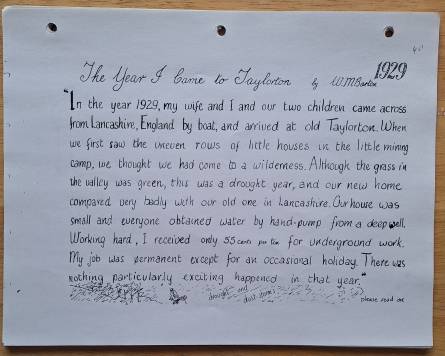 The Year I Came to Taylorton by W.M Barton 1929
"In the year 1929, my wife and I and our two children came across
from Lancashire, England by boat, and arrived at old Taylorton. When
we first saw the uneven rows of little houses in the little mining
camp, we thought we had come to a wilderness. Although the grass in
the valley was green, this was a drought year, and our new home
compared very badly with our old one in Lancashire. Our house was
small and everyone obtained water by hand-pump from a deep well.
Working hard, I received only 55 cents per ton for underground work.
My job was permanent except for an occasional holiday. There was
nothing particularly exciting happened in that year."
drought and dust storms
please read on